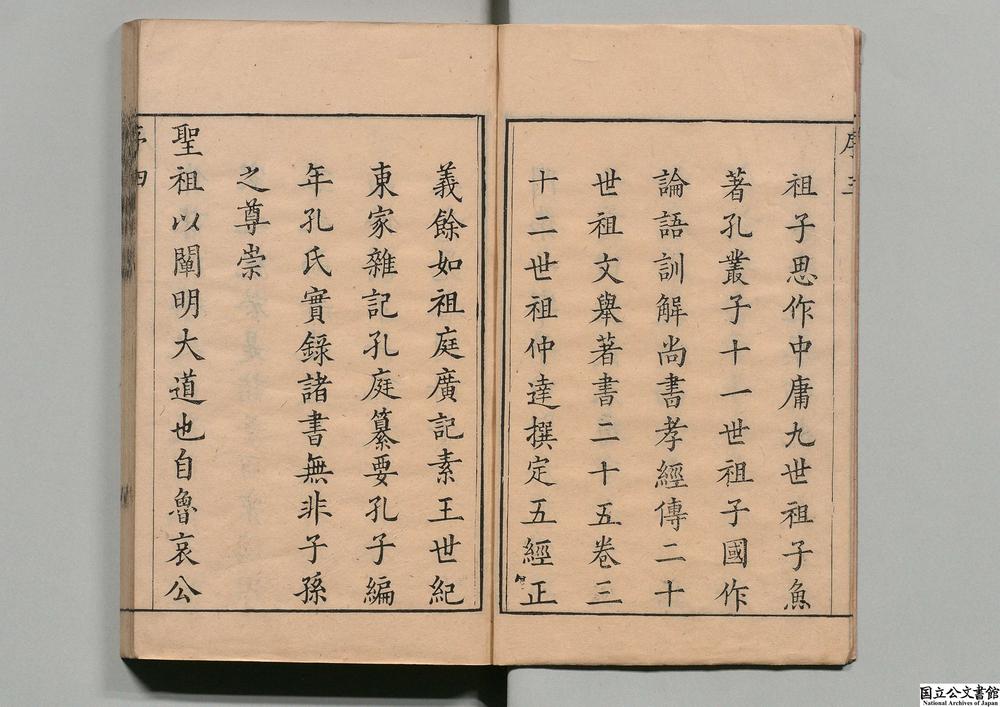 序三
祖子思作中庸九世祖子魚
著孔叢子十一世祖子國作
論語訓解尚書孝經傳二十
世祖文舉著書二十五卷三
十二世祖仲達撰定五經正
義餘如祖庭廣記素王世紀
東家雜記孔庭纂要孔子編
年孔氏實錄諸書無非子孫
之尊崇
聖祖以闡明大道也自魯哀公
序四
国立公文書館
National Archives of Japan